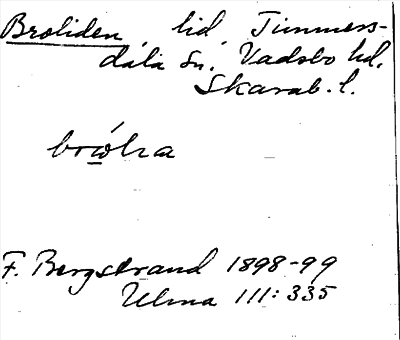 Broliden, lid, Timmers-
dala sn. Vadsbo hd.
Skarab. l.
F. Bergstrand 1898-99
Ulma 111:335